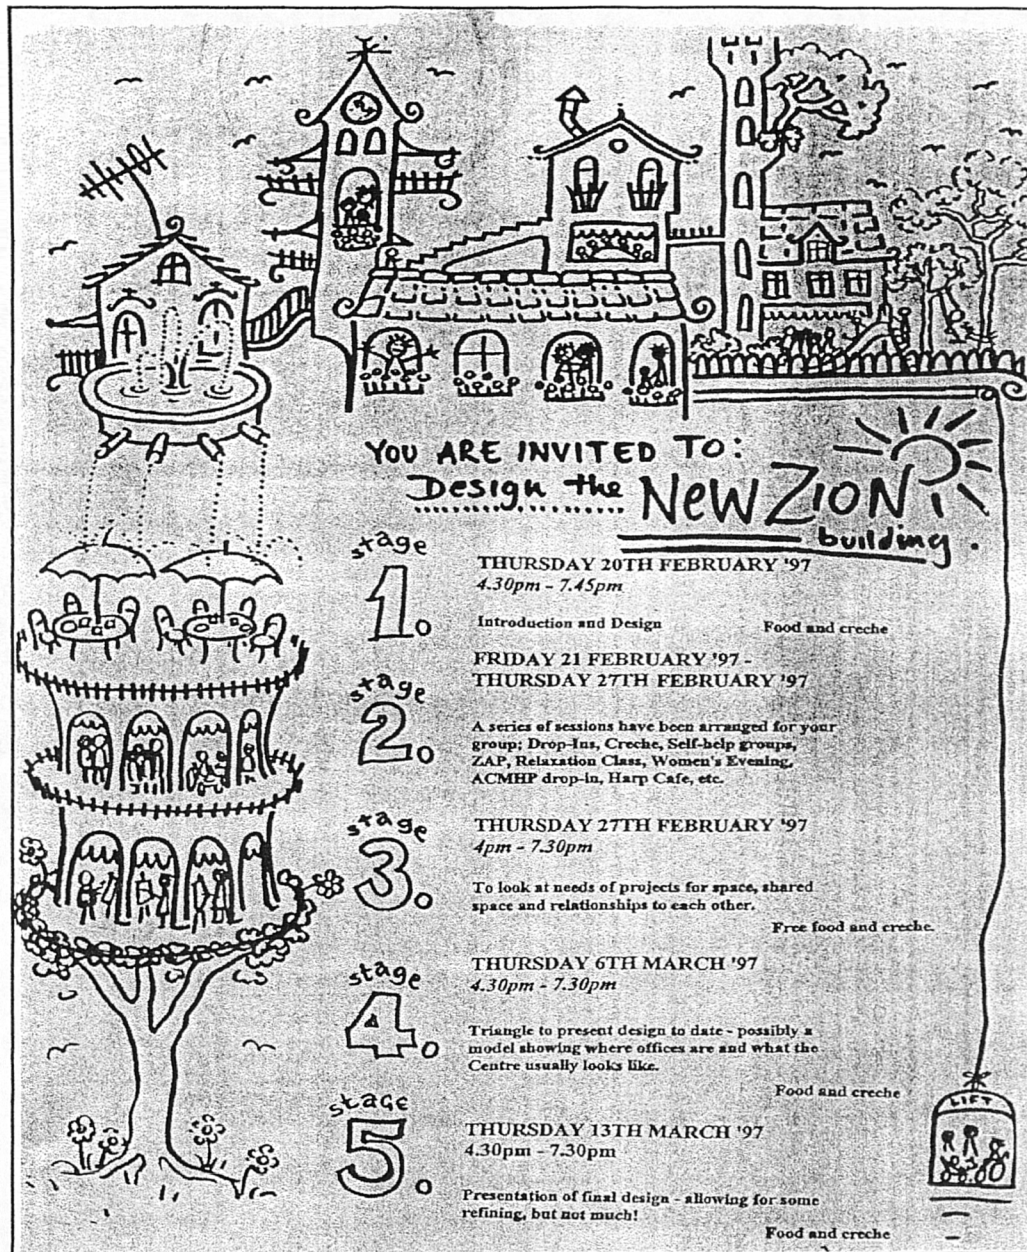 YOU ARE INVITED TO:
Design the New ZION
building.
stage
1.
THURSDAY 20TH FEBRUARY '97
4.30pm - 7.45pm
Introduction and Design
Food and creche
stage
2.
FRIDAY 21 FEBRUARY '97 -
THURSDAY 27TH FEBRUARY '97
A series of sessions have been arranged for your
group; Drop-Ins, Creche, Self-help groups,
ZAP, Relaxation Class, Women's Evening,
ACMHP drop-in, Harp Cafe, etc.
stage
3.
THURSDAY 27TH FEBRUARY '97
4pm - 7.30pm
To look at needs of projects for space, shared
space and relationships to each other.
Free food and creche.
stage
4.
THURSDAY 6TH MARCH '97
4.30pm - 7.30pm
Triangle to present design to date - possibly a
model showing where offices are and what the
Centre usually looks like.
Food and creche
LIFT
stage
5.
THURSDAY 13TH MARCH '97
4.30pm - 7.30pm
Presentation of final design - allowing for some
refining, but not much!
Food and creche